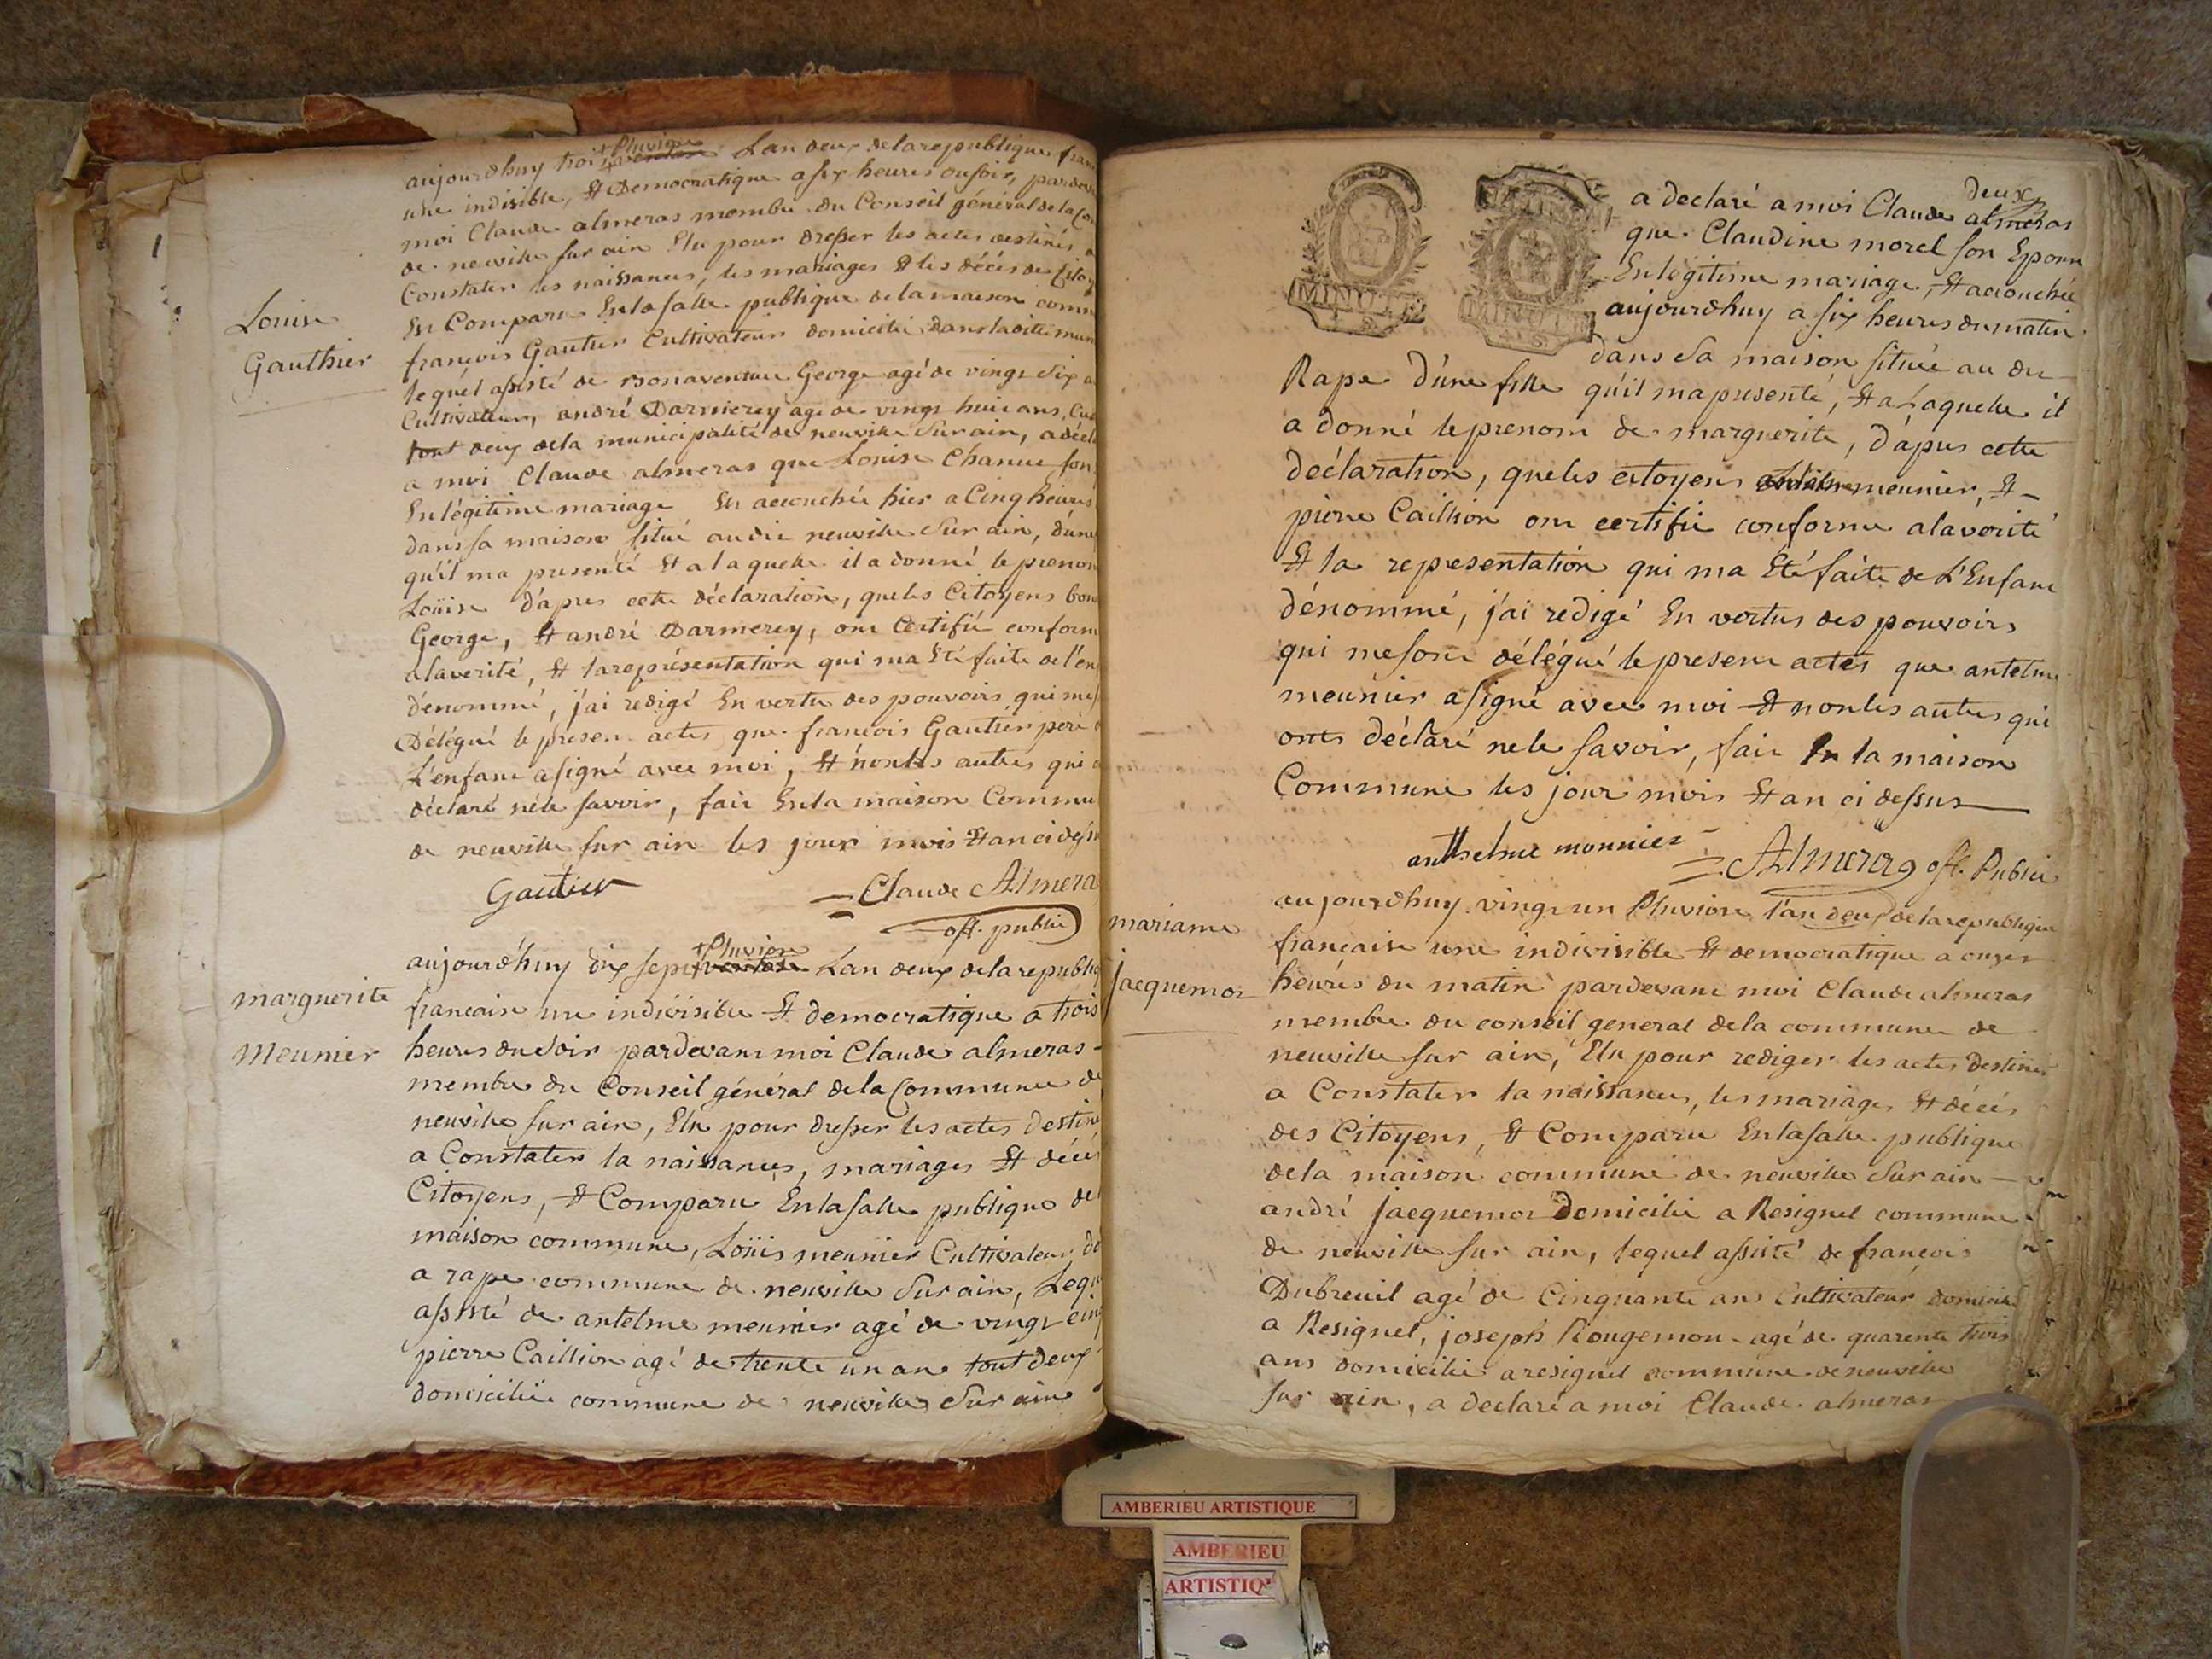 Louise
Gauthier
aujourdhuy trois ventose + Pluviose Lan deux dela republique fran
une indisible, Et Democratique a six heures du soir, pardev
moi Claude almeras membre du Conseil général de la Co
de neuville sur ain Elu pour dresser les actes destinés a
Constater les naissances, les mariages Et les décès des Citoy
En Comparu En la salle publique de la maison comm
françois Gautier Cultivateur domicilié dans ladite muni
lequel assisté de Bonaventure George agé de vingt six a
Cultivateur, andré Darmerey agé de vingt huit ans, Cul
tout deux dela municipalité de neuville sur ain, a décl
a moi Claude almeras que Louise Chanue son
En légitime mariage En accouchée hier a Cinq heures
dans sa maison situé audit neuville sur ain, d'une
qu'il ma presenté Et a laquelle il a donné le prenom
Loüise d'apres cette déclaration, que les Citoyens bon
George, Et andré Darmerey, ont Certifié conform
alaverité, Et la représentation qui ma Eté faite de l'en
dénommé, j'ai redigé En vertu des pouvoirs qui me s
Délégué le present actes que françois Gautier pere d
L'enfant a signé avec moi, Et non les autres qui o
déclaré ne le savoir, fait En la maison Commu
de neuville sur ain les jour mois Et an ci dess
Gautier
Claude Almera
off. public
marguerite
Meunier
aujourd'huy dix sept ventose + Pluviose Lan deux dela republiq
francaise une indivisible Et democratique a trois
heures du soir pardevant moi Claude almeras
membre du Conseil général de la Commune de
neuville sur ain, Elu pour dresser les actes destiné
a Constater la naissances, mariages Et décès
Citoyens, Et Comparu En la salle publique de
maison commune, Loüis meunier Cultivateur do
a rape commune de neuville sur ain, Lequ
assisté de antelme meunier agé de vingt cinq
pierre Caillion agé de trente un ans tout deux
domicilié commune de neuville sur ain
MINUTE
MINUTE
deux
a declaré a moi Claude almeras
que Claudine morel son Epouse
En légitime mariage, Et accouchée
aujourdhuy a six heures du matin
dans sa maison située au du
Rape d'une fille qu'il ma presenté, Et a Laquelle il
a donné le prenom de marguerite, D'apres cette
déclaration, que les citoyens antelme meunier, Et
pierre Caillion ont certifié conforme a la vérité
Et la representation qui ma Eté faite de L'Enfant
dénommé, j'ai redigé En vertus des pouvoirs
qui me sont délégué le present actes que antelme
meunier a signé avec moi Et non les autres qui
onts déclaré ne le savoir, fait En la maison
Commune les jour mois Et an ci dessus
antthelme monnier
Almeras off. Public
mariane
jacquemot
aujourdhuy vingt un Pluviose l'an deux de la republique
française une indivisible Et democratique a onze
heures du matin pardevant moi Claude almeras
membre du conseil general de la commune de
neuville sur ain, Elu pour rediger les actes destinés
a Constater la naissances, les mariages Et décès
des Citoyens, Et Comparu En la salle publique
de la maison commune de neuville sur ain
andré jacquemot Domicilié a Resignel commune
de neuville sur ain, lequel assisté de françois
Dubreuil agé de Cinquante ans Cultivateur domicilié
a Resignel, joseph Rougemont agé de quarente trois
ans domicilié a resignel commune de neuville
sur ain, a declaré a moi Claude almeras
AMBERIEU ARTISTIQUE
AMBERIEU
ARTISTIQ